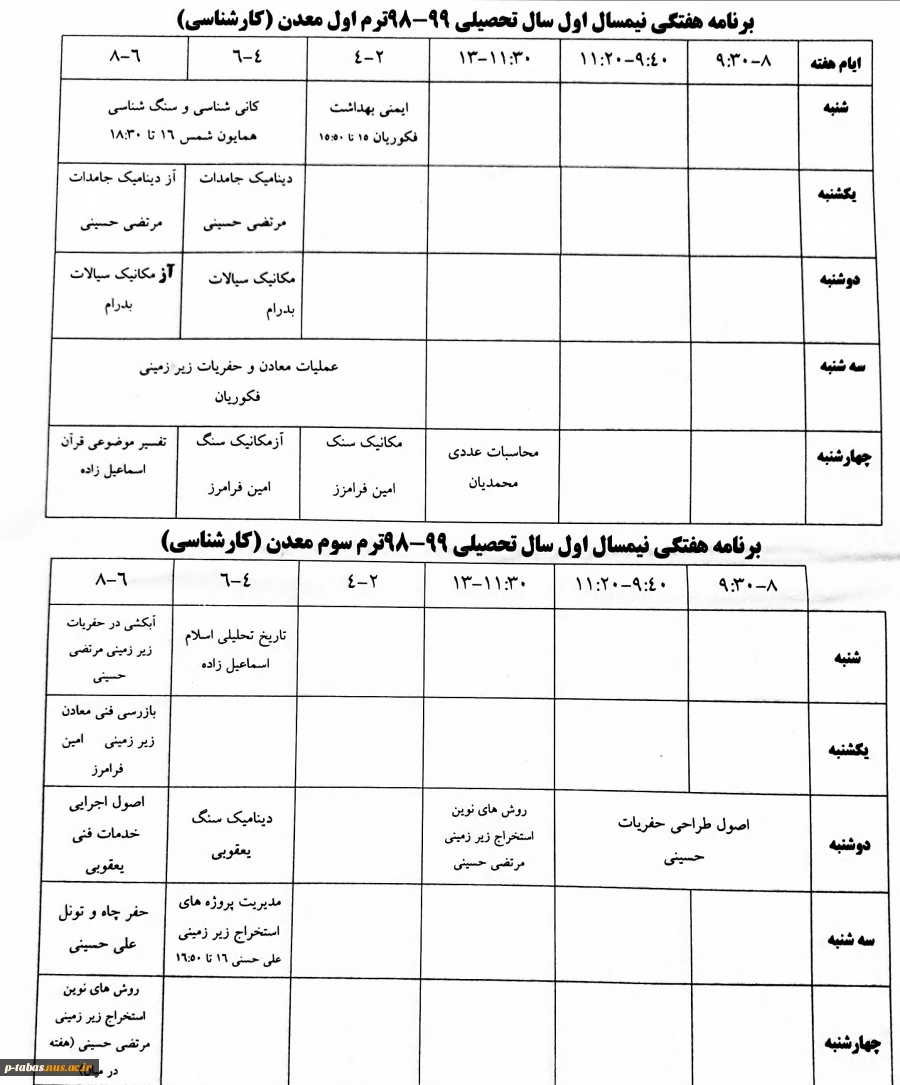 برنامه هفتگی نیمسال اول سال تحصیلی ۹۹-۹۸ترم اول معدن (کارشناسی)
ایام هفته ۸-۹:۳۰ ۹:۴۰-۱۱:۲۰ ۱۱:۳۰-۱۳ ۲-۴ ۴-۶ ۶-۸
شنبه
ایمنی بهداشت
فکوریان ۱۵ تا ۱۵:۵۰
کانی شناسی و سنگ شناسی
همایون شمس ۱۶ تا ۱۸:۳۰
یکشنبه
دینامیک جامدات
مرتضی حسینی
آز دینامیک جامدات
مرتضی حسینی
دوشنبه
مکانیک سیالات
بدرام
آز مکانیک سیالات
بدرام
سه شنبه
عملیات معادن و حفریات زیر زمینی
فکوریان
چهارشنبه
محاسبات عددی
محمدیان
مکانیک سنک
امین فرامزز
آزمکانیک سنگ
امین فرامرز
تفسیر موضوعی قرآن
اسماعیل زاده
برنامه هفتگی نیمسال اول سال تحصیلی ۹۹-۹۸ترم سوم معدن (کارشناسی)
۸-۹:۳۰ ۹:۴۰-۱۱:۲۰ ۱۱:۳۰-۱۳ ۲-۴ ۴-۶ ۶-۸
شنبه
تاریخ تحلیلی اسلام
اسماعیل زاده
آبکشی در حفریات
زیر زمینی مرتضی
حسینی
یکشنبه
بازرسی فنی معادن
زیر زمینی امین
فرامرز
دوشنبه
اصول طراحی حفریات
حسینی
روش های نوین
استخراج زیر زمینی
مرتضی حسینی
دینامیک سنگ
یعقوبی
اصول اجرایی
خدمات فنی
یعقوبی
سه شنبه
مدیریت پروژه های
استخراج زیر زمینی
علی حسنی ۱۶ تا ۱۶:۵۰
حفر چاه و تونل
علی حسینی
چهارشنبه
روش های نوین
استخراج زیر زمینی
مرتضی حسینی (هفته
در میان)
p-tabas.nus.ac.ir